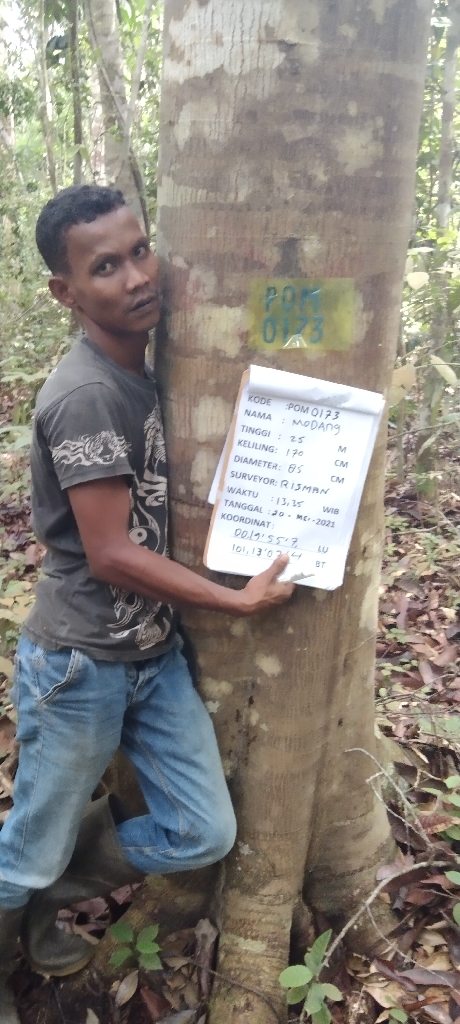 POM
0173
KODE :POM 0173
NAMA : MODANG
TINGGI : 25 M
KELILING: 170 CM
DIAMETER: 85 CM
SURVEYOR: RISMAN
WAKTU : 13,35 WIB
TANGGAL :20 - MEI - 2021
KOORDINAT:
LU
BT